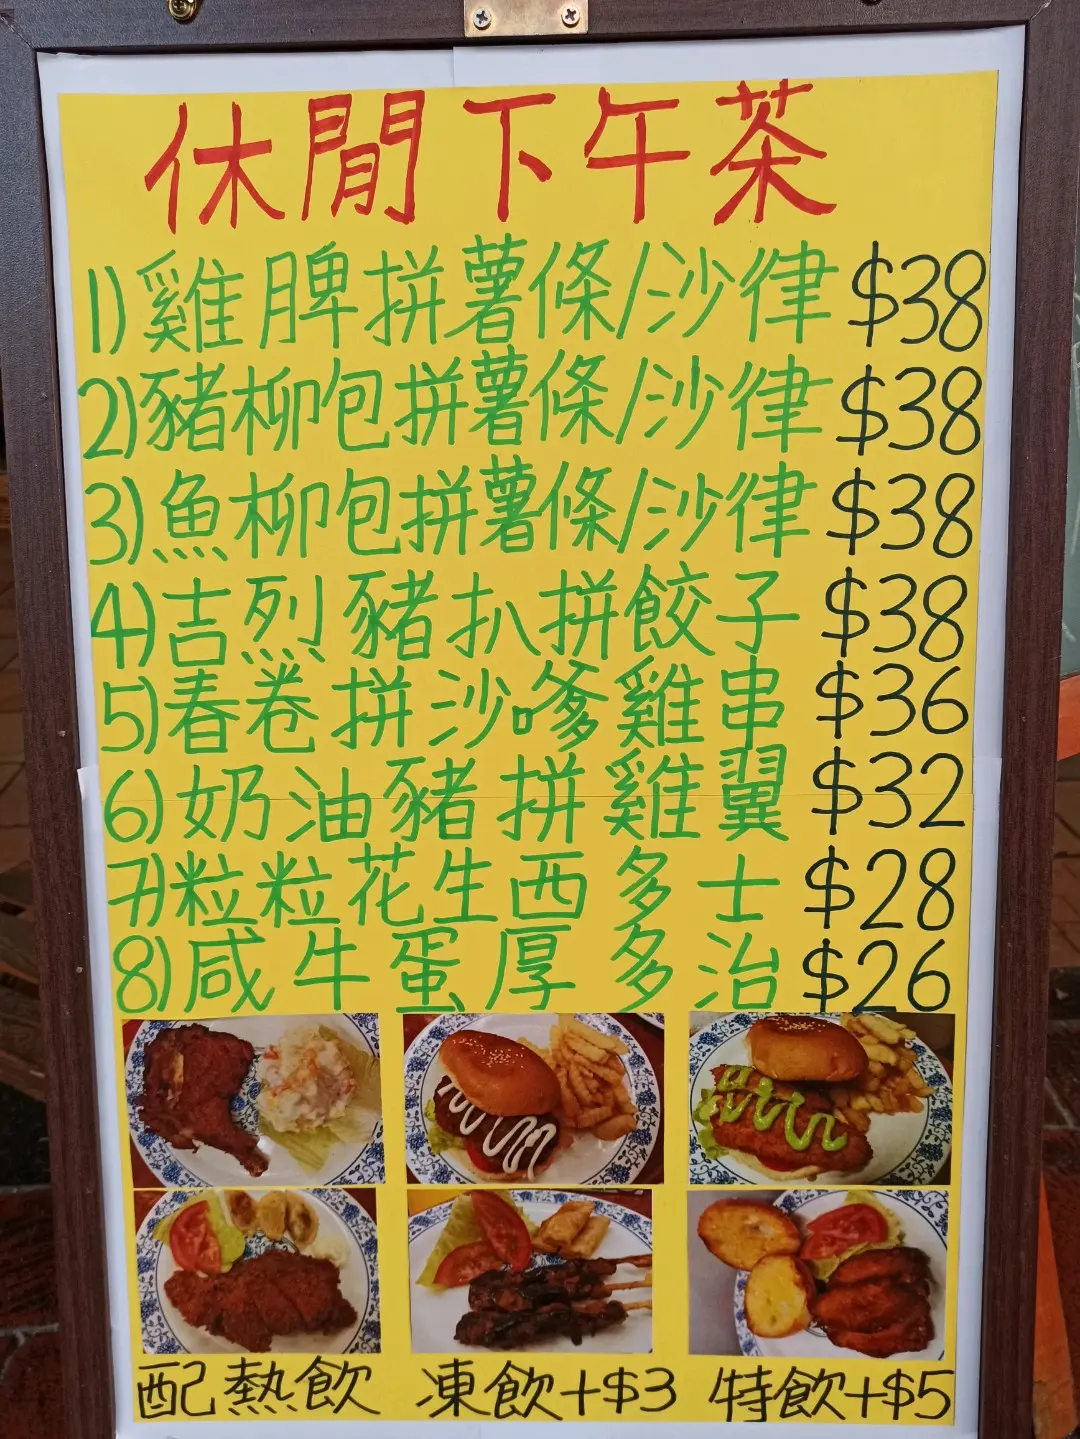 休閒下午茶
1)雞脾拼薯條/沙律 $38
2)豬柳包拼薯條/沙律 $38
3)魚柳包拼薯條/沙律 $38
4)吉烈豬扒拼餃子 $38
5)春卷拼沙嗲雞串 $36
6)奶油豬拼雞翼 $32
7)粒粒花生西多士 $28
8)咸牛蛋厚多治 $26
配熱飲 凍飲+$3 特飲+$5